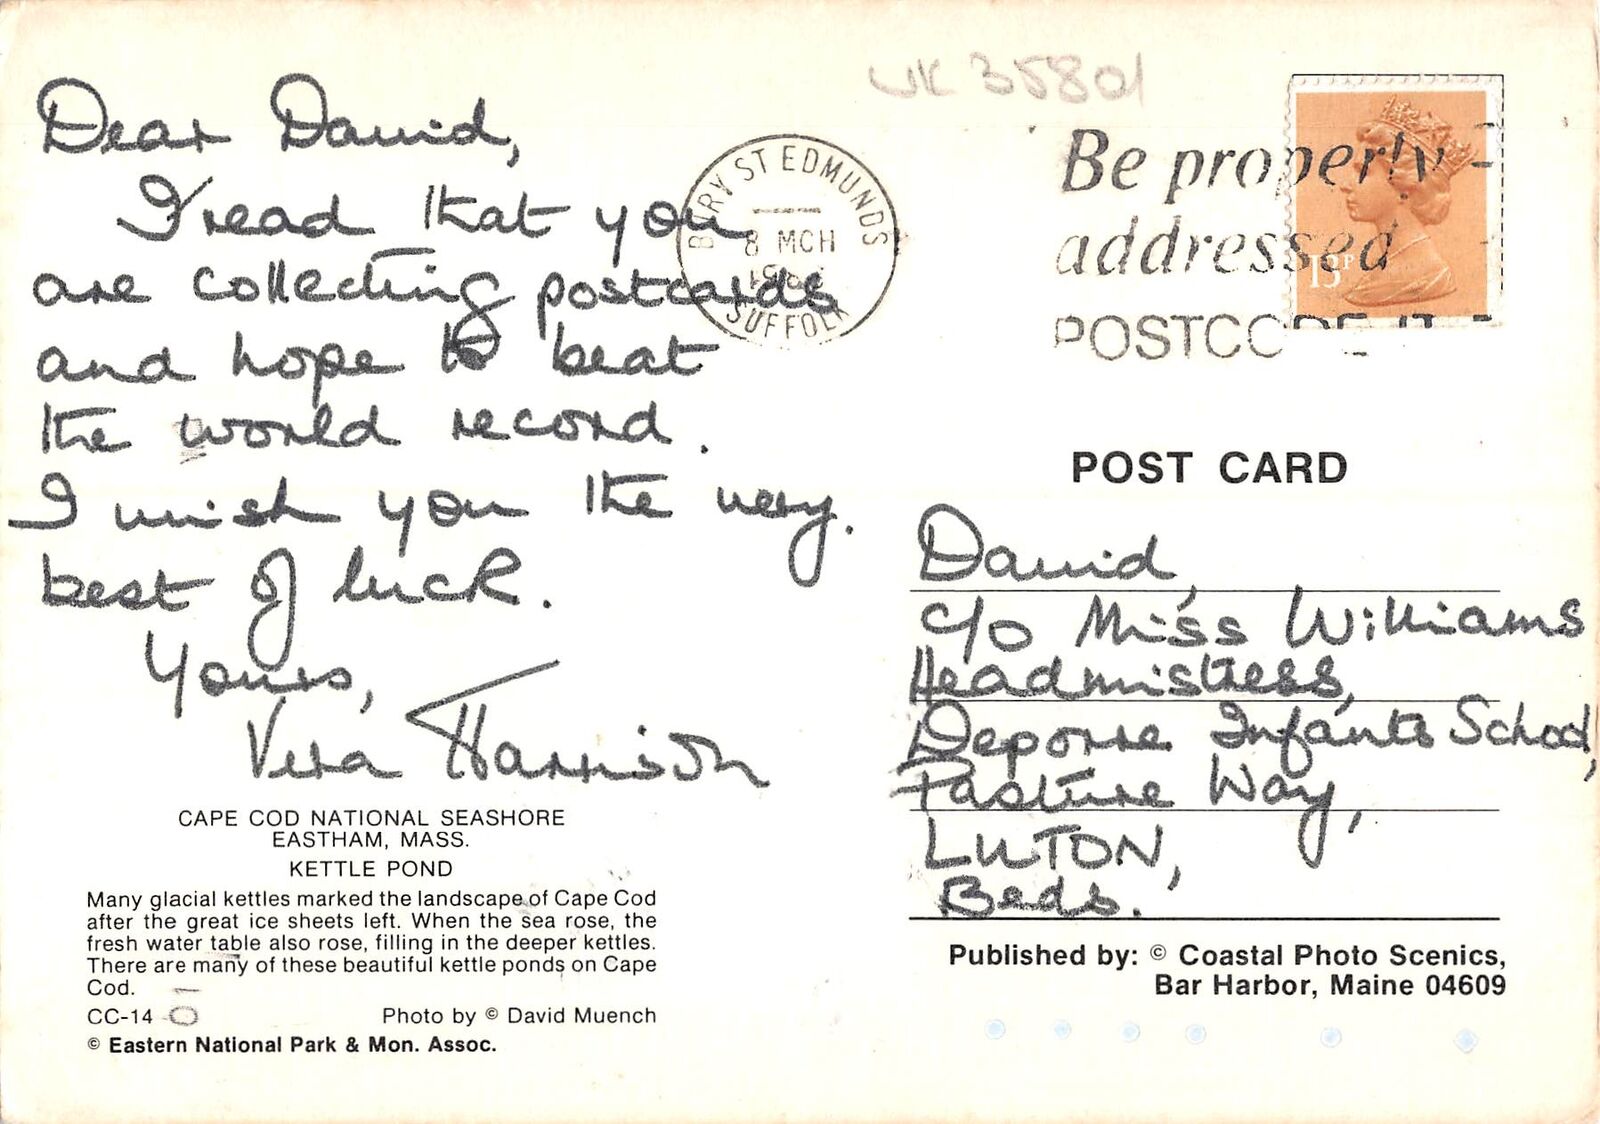 UK 35801
Dear David,
I read that you
are collecting postcards
and hope to beat
the world record.
I wish you the very
best of luck.
Yours,
Vera Harrison
CAPE COD NATIONAL SEASHORE
EASTHAM, MASS.
KETTLE POND
Many glacial kettles marked the landscape of Cape Cod
after the great ice sheets left. When the sea rose, the
fresh water table also rose, filling in the deeper kettles.
There are many of these beautiful kettle ponds on Cape
Cod.
CC-14
Photo by © David Muench
© Eastern National Park & Mon. Assoc.
BURY ST EDMUNDS
8 MCH
SUFFOLK
Be properly
addressed
POSTCODE IT
13P
POST CARD
David,
c/o Miss Williams
Headmistress,
Deporre Infants School,
Pasture Way,
LUTON,
Beds.
Published by: © Coastal Photo Scenics,
Bar Harbor, Maine 04609